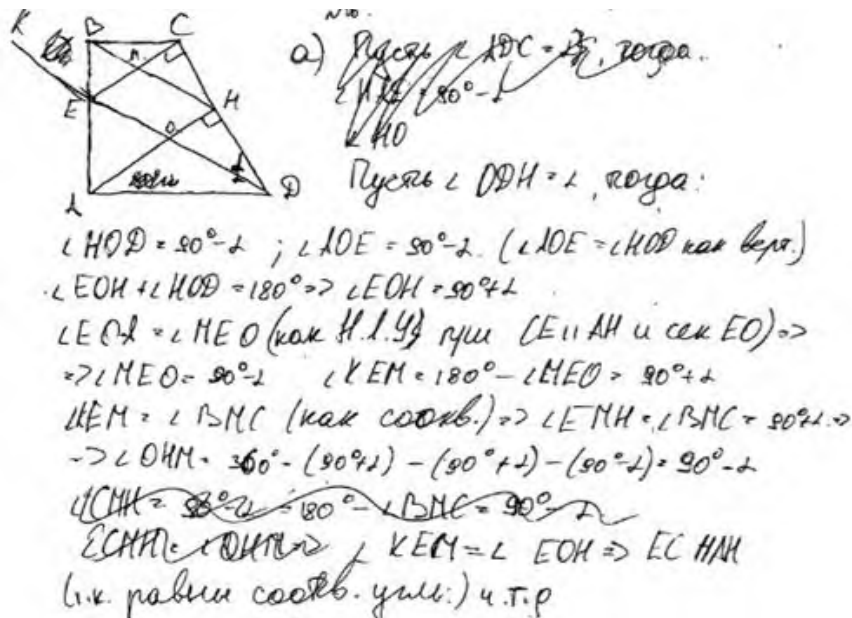 К B C
а)
E M H
O
A D
Пусть ∠ ODH = α, тогда:
∠HOD = 90°-α ; ∠AOE = 90°-α. (∠AOE = ∠HOD как верт.)
∠EOH + ∠HOD = 180° => ∠EOH = 90°+α
∠EOA = ∠MEO (как Н.Л.У) при CE||AH и сек EO) =>
=> ∠MEO = 90°-α ∠KEM = 180° - ∠MEO = 90°+α
∠KEM = ∠BMC (как соотв.) => ∠EMH = ∠BMC = 90°+α =>
=> ∠OHM = 360° - (90°+α) - (90°+α) - (90°-α) = 90°-α
∠CMH = 180° - ∠BMC = 90°-α
∠KEM = ∠ EOH => EC ||AH
(т.к. равны соотв. углы.) ч.т.д